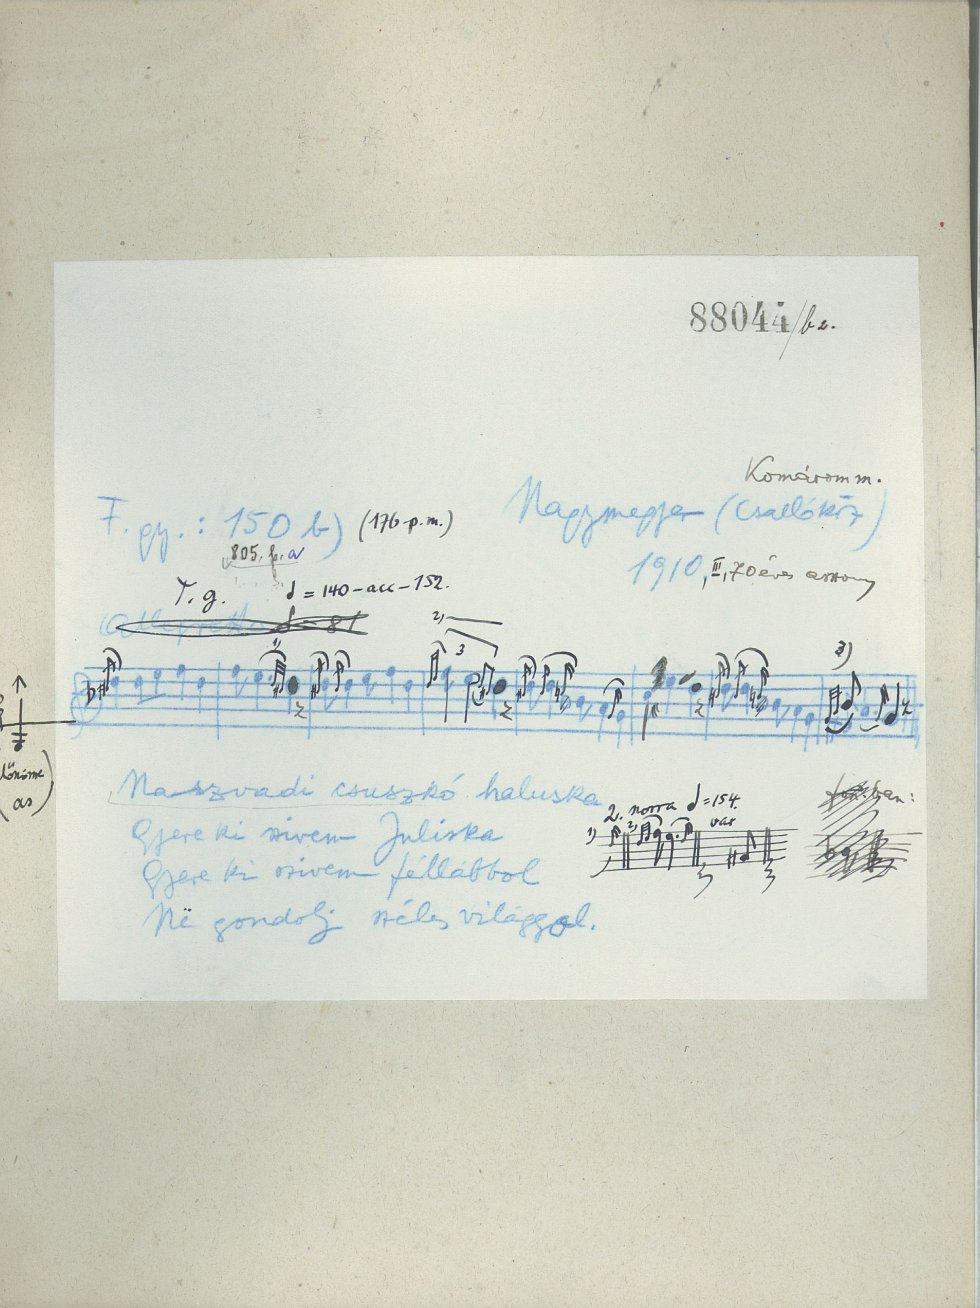 88044/b2.
Komárom m.
F. gy.: 150 b) (176-p.m.)
Nagymegyer (Csallóköz)
805. f. a
1910, III, 70 éves asszony
T. g. = 140 - acc - 152.
Allegretto = 81
1) 2) 3 3)
(as)
Na szvadi csuszkó haluska
Gyere ki szivem Juliska
Gyere ki szivem féllábbol
Në gondolj széles világgal.
2. norra = 154.
1) 2) var